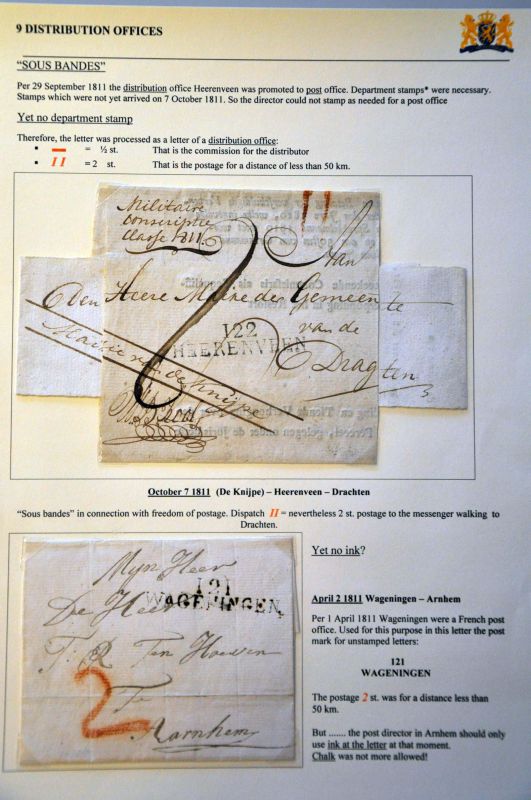 9 DISTRIBUTION OFFICES
"SOUS BANDES"
Per 29 September 1811 the distribution office Heerenveen was promoted to post office. Department stamps* were necessary.
Stamps which were not yet arrived on 7 October 1811. So the director could not stamp as needed for a post office
Yet no department stamp
Therefore, the letter was processed as a letter of a distribution office:
• — = ½ st. That is the commission for the distributor
• II = 2 st. That is the postage for a distance of less than 50 km.
Militaire
Conscriptie
Classe 1811.
II
Van
Den Heere Maire der Gemeente
122
HEERENVEEN
van de
Dragten
Maire van de Knijpe
October 7 1811 (De Knijpe) – Heerenveen – Drachten
"Sous bandes" in connection with freedom of postage. Dispatch II = nevertheless 2 st. postage to the messenger walking to
Drachten.
Mijn Heer
121
WAGENINGEN
De Heer
T. R. Ten Hoeven
Te
2
Aarnhem
Yet no ink?
April 2 1811 Wageningen – Arnhem
Per 1 April 1811 Wageningen were a French post
office. Used for this purpose in this letter the post
mark for unstamped letters:
121
WAGENINGEN
The postage 2 st. was for a distance less than
50 km.
But ....... the post director in Arnhem should only
use ink at the letter at that moment.
Chalk was not more allowed!